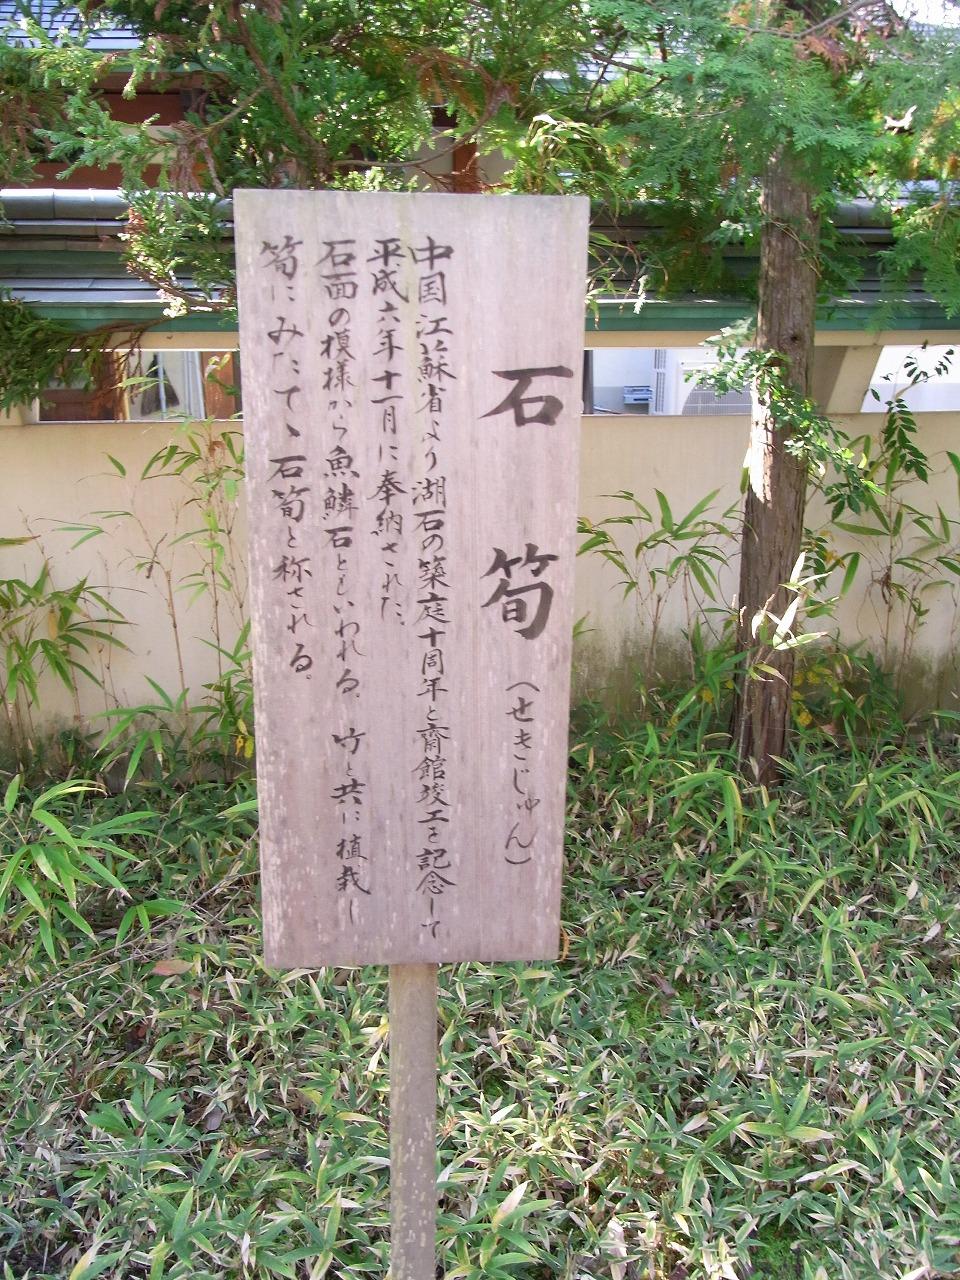 石筍（せきじゅん）
中国江蘇省より湖石の築庭十周年と齋館竣工を記念して
平成六年十一月に奉納された。
石面の模様から魚鱗石ともいわれる。竹と共に植栽し
筍にみたて、石筍と称される。